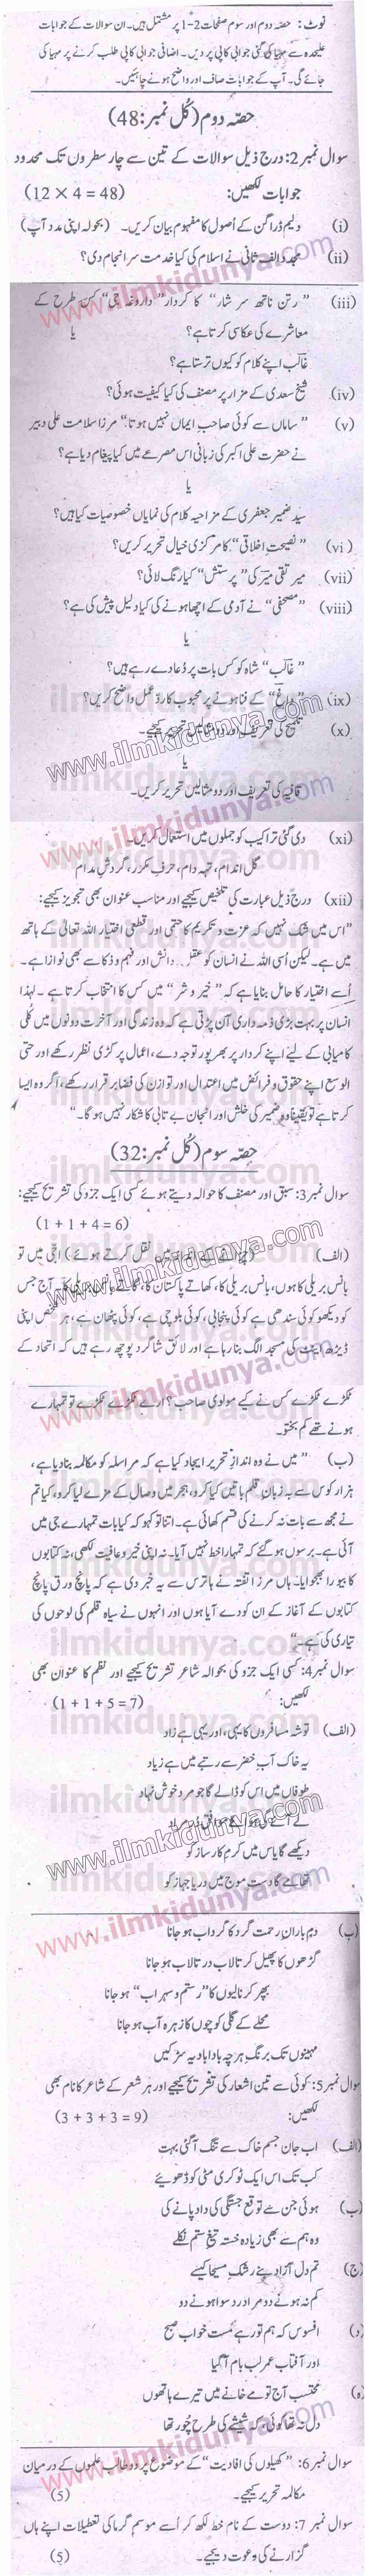 نوٹ: حصہ دوم اور سوم صفحات 2-1 پر مشتمل ہیں۔ ان سوالات کے جوابات
علیحدہ سے مہیا کی گئی جوابی کاپی پر دیں۔ اضافی جوابی کاپی طلب کرنے پر مہیا کی
جائے گی۔ آپ کے جوابات صاف اور واضح ہونے چاہئیں۔
حصّہ دوم (کُل نمبر: 48)
سوال نمبر 2: درج ذیل سوالات کے تین سے چار سطروں تک محدود
جوابات لکھیں: (12 × 4 = 48)
(i) ولیم ڈراگن کے اُصول کا مفہوم بیان کریں۔ (بحوالہ اپنی مدد آپ)
(ii) مجدد الف ثانی نے اسلام کی کیا خدمت سر انجام دی؟
(iii) "رتن ناتھ سرشار" کا کردار "داروغہ جی" کس طرح کے
معاشرے کی عکاسی کرتا ہے؟ یا
غالب اپنے کلام کو کیوں ترستا ہے؟
(iv) شیخ سعدی کے مزار پر مصنف کی کیا کیفیت ہوئی؟
(v) "ساماں سے کوئی صاحبِ ایماں نہیں ہوتا" مرزا سلامت علی دبیر
نے حضرت علی اکبر کی زبانی اس مصرعے میں کیا پیغام دیا ہے؟
یا
سید ضمیر جعفری کے مزاحیہ کلام کی نمایاں خصوصیات کیا ہیں؟
(vi) "نصیحتِ اخلاقی" کا مرکزی خیال تحریر کریں؟
(vii) میر تقی میر کی "پرستش" کیا رنگ لائی؟
(viii) "مصحفی" نے آدمی کے اچھا ہونے کی کیا دلیل پیش کی ہے؟
یا
"غالب" شاہ کو کس بات پر دُعا دے رہے ہیں؟
(ix) "داغ" کے فنا ہونے پر محبوب کا ردِّ عمل واضح کریں؟
(x) تلمیح کی تعریف اور دو مثالیں تحریر کیجیے۔
یا
قافیہ کی تعریف اور دو مثالیں تحریر کریں۔
(xi) دی گئی تراکیب کو جملوں میں استعمال کریں۔
گل اندام، تہہ دام، حرفِ مکرر، گردشِ مدام
(xii) درج ذیل عبارت کی تلخیص کیجیے اور مناسب عنوان بھی تجویز کیجیے:
"اس میں شک نہیں کہ عزت و تکریم کا حتمی اور قطعی اختیار اللہ تعالیٰ کے ہاتھ
میں ہے۔ لیکن اُسی اللہ نے انسان کو عقل و دانش اور فہم و ذکا سے بھی نوازا ہے۔
اُسے اختیار کا حامل بنایا ہے کہ "خیر و شر" میں کس کا انتخاب کرتا ہے۔ لہٰذا
انسان پر بہت بڑی ذمہ داری آن پڑتی ہے کہ وہ زندگی اور آخرت دونوں میں کُلی
کامیابی کے لیے اپنے کردار پر بھرپور توجہ دے، اعمال پر کڑی نظر رکھے اور حتی
الوسع اپنے حقوق و فرائض میں اعتدال اور توازن کی فضا برقرار رکھے، اگر وہ ایسا
کرتا ہے تو یقیناً وہ ضمیر کی خلش اور انجان بے تابی کا شکار نہیں ہو گا۔"
حصّہ سوم (کُل نمبر: 32)
سوال نمبر 3: سبق اور مصنف کا حوالہ دیتے ہوئے کسی ایک جزو کی تشریح کیجیے:
(1 + 1 + 4 = 6)
(الف) میں نقل کرتے ہوئے) اجی میں تو
بانس بریلی کا ہوں، بانس بریلی کا، کھاتے پاکستان کا، گاتے آج جس
کو دیکھو کوئی سندھی ہے کوئی پنجابی، کوئی بلوچی ہے، کوئی پٹھان ہے، ہر شخص اپنی
ڈیڑھ اینٹ کی مسجد الگ بنا رہا ہے اور لائق شاگرد پوچھ رہے ہیں کہ اتحاد کے
ٹکڑے ٹکڑے کس نے کیے مولوی صاحب؟ ارے ٹکڑے ٹکڑے تو تمہارے
ہونے تھے کم بختو۔
(ب) "میں نے وہ اندازِ تحریر ایجاد کیا ہے کہ مراسلہ کو مکالمہ بنا دیا ہے،
ہزار کوس سے بہ زبانِ قلم باتیں کیا کرو، ہجر میں وصال کے مزے لیا کرو، کیا تم
نے مجھ سے بات نہ کرنے کی قسم کھائی ہے۔ اتنا تو کہو کہ کیا بات تمہارے جی میں
آئی ہے۔ برسوں ہو گئے کہ تمہارا خط نہیں آیا۔ نہ اپنی خیر و عافیت لکھی، نہ کتابوں
کا بیورا بھجوایا۔ ہاں مرزا تفتہ نے ہاترس سے یہ خبر دی ہے کہ پانچ ورق پانچ
کتابوں کے آغاز کے ان کو دے آیا ہوں اور انہوں نے سیاہ قلم کی لوحوں کی
تیاری کی ہے۔"
سوال نمبر 4: کسی ایک جزو کی بحوالہ شاعر تشریح کیجیے اور نظم کا عنوان بھی
لکھیں: (1 + 1 + 5 = 7)
(الف) توشہ مسافروں کا یہی، اور یہی ہے زاد
یہ خاک آبِ خضر سے رتبے میں ہے زیاد
طوفاں میں اس کو ڈالے گا جو مردِ خوش نہاد
دیکھے گا یاس میں کرم کارساز کو
تھامے گا دستِ موج میں دریا جہاز کو
(ب) دمِ باران رحمت گرد کا گرداب ہو جانا
گڑھوں کا پھیل کر تالاب در تالاب ہو جانا
بپھر کر نالیوں کا "رستم و سہراب" ہو جانا
محلے کے گلی کوچوں کا زہرہ آب ہو جانا
مہینوں تک برنگِ ہرچہ بادا باد یہ سڑکیں
سوال نمبر 5: کوئی سے تین اشعار کی تشریح کیجیے اور ہر شعر کے شاعر کا نام بھی
لکھیں: (3 + 3 + 3 = 9)
(الف) اب جان جسم خاک سے تنگ آ گئی بہت
کب تک اس ایک ٹوکری مٹی کو ڈھوئیے
(ب) ہوئی جن سے توقع خستگی کی داد پانے کی
وہ ہم سے بھی زیادہ خستہ تیغِ ستم نکلے
(ج) تم دل آزار بنے رشکِ مسیحا کیسے
کم نہ ہونے دو مرا درد سوا ہونے دو
(د) افسوس کہ ہم تو رہے مستِ خوابِ صبح
اور آفتابِ عمر لبِ بام آ گیا
(ہ) محتسب آج تو مے خانے میں تیرے ہاتھوں
دل نہ تھا کوئی، کہ شیشے کی طرح چُور نہ تھا
سوال نمبر 6: "کھیلوں کی افادیت" کے موضوع پر دو طالب علموں کے درمیان
مکالمہ تحریر کیجیے۔ (5)
سوال نمبر 7: دوست کے نام خط لکھ کر اُسے موسم گرما کی تعطیلات اپنے ہاں
گزارنے کی دعوت دیجیے۔ (5)
www.ilmkidunya.com